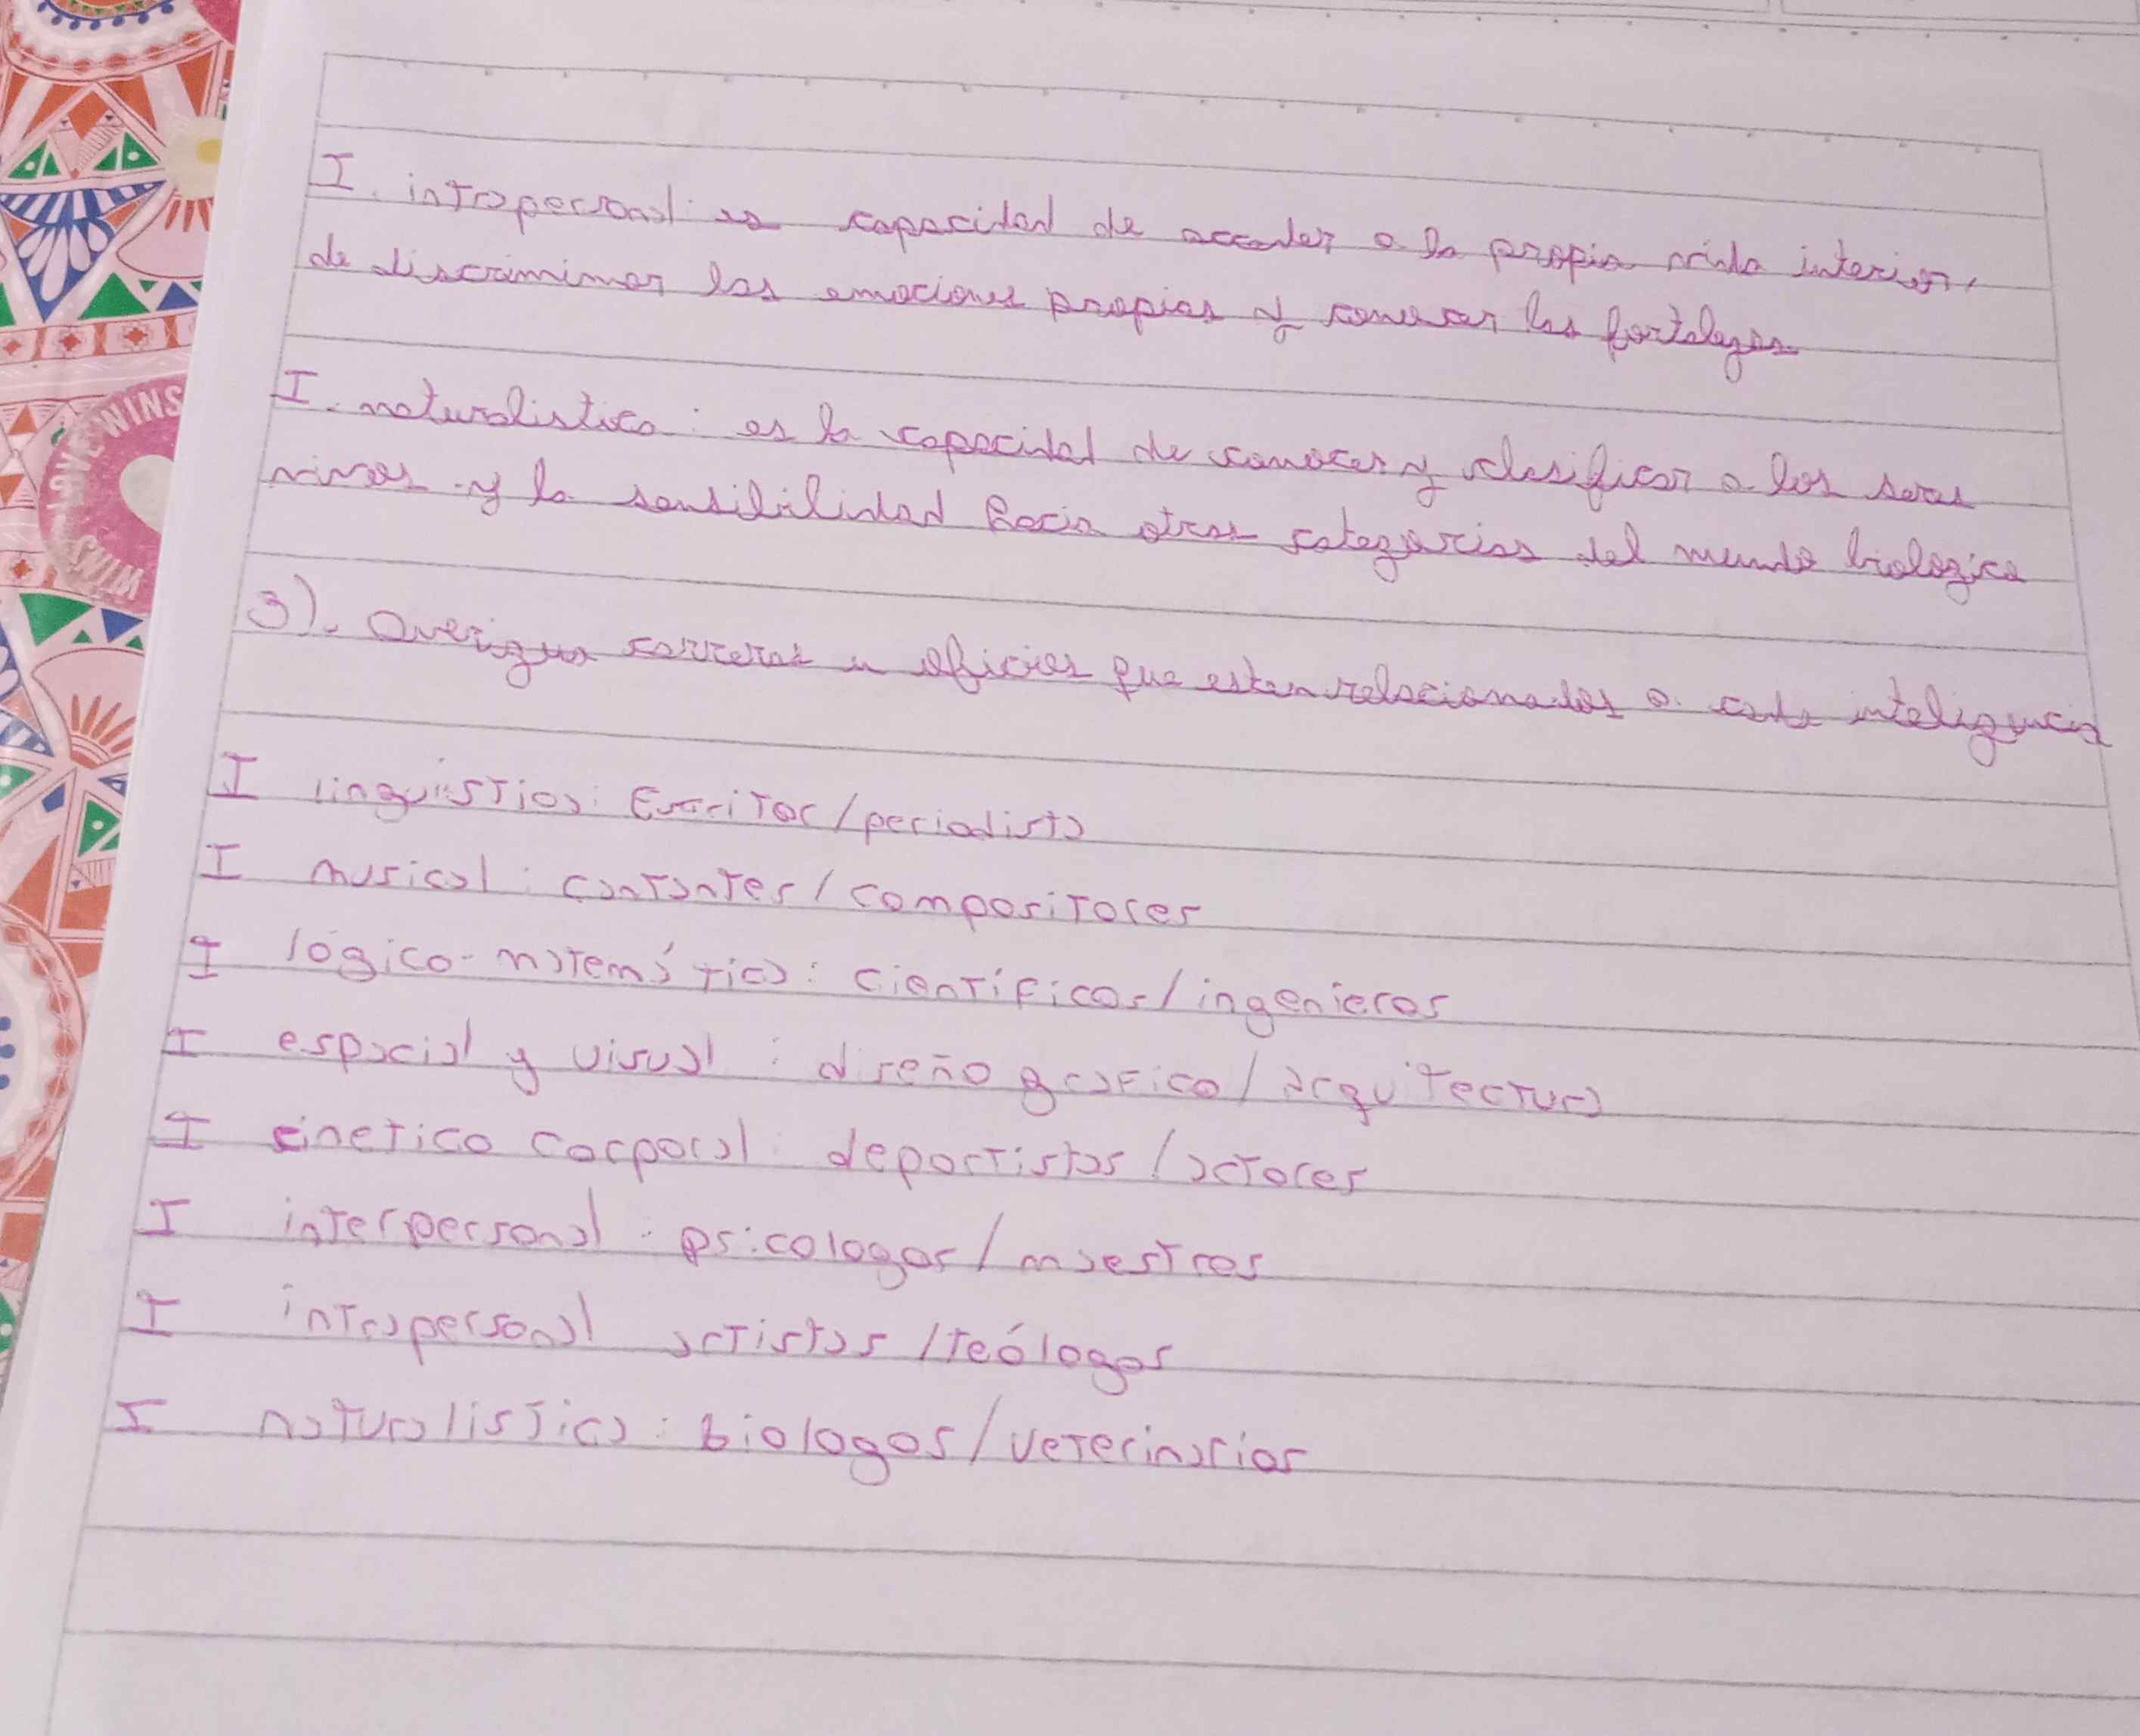 WINS
LOVE
SWIM
I. intrapersonal: es capacidad de acceder a la propia vida interior,
de discriminar las emociones propias y conocer las fortalezas
I. naturalistica: es la capacidad de conocer y clasificar a los seres
vivos y la sensibilidad hacia otras categorias del mundo biologico
3). Averiguar carreras u oficios que esten relacionados a cada inteligencia
I lingüistica: Escritor/periodista
I musical: cantantes/compositores
I lógico-matemática: científicos/ingenieros
I espacial y visual: diseño grafico/arquitectura
I cinetico corporal: deportistas/actores
I interpersonal: psicologos/maestros
I intrapersonal artistas/teólogos
I naturalistica: biologos/veterinarios